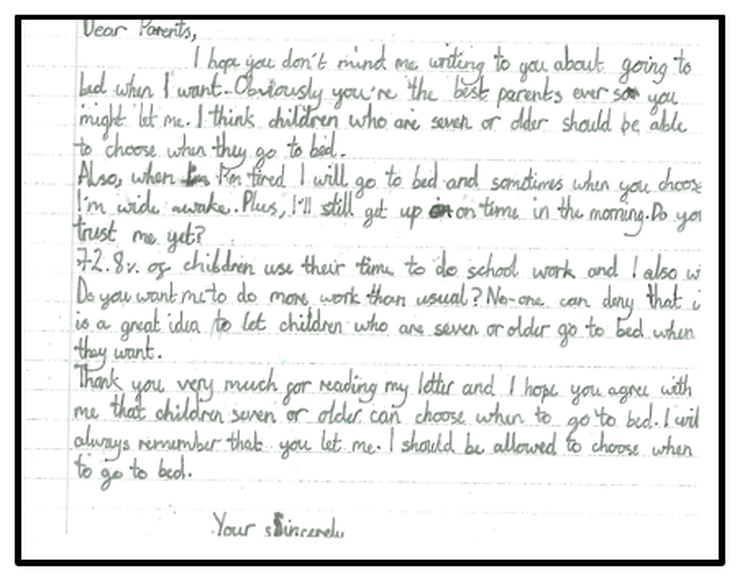 Dear Parents,
I hope you don't mind me writing to you about going to
bed when I want. Obviously you're the best parents ever so you
might let me. I think children who are seven or older should be able
to choose when they go to bed.
Also, when I'm tired I will go to bed and sometimes when you choose
I'm wide awake. Plus, I'll still get up on time in the morning. Do you
trust me yet?
72.8% of children use their time to do school work and I also wi
Do you want me to do more work than usual? No-one can deny that i
is a great idea to let children who are seven or older go to bed when
they want.
Thank you very much for reading my letter and I hope you agree with
me that children seven or older can choose when to go to bed. I will
always remember that you let me. I should be allowed to choose when
to go to bed.
Your Sincerely